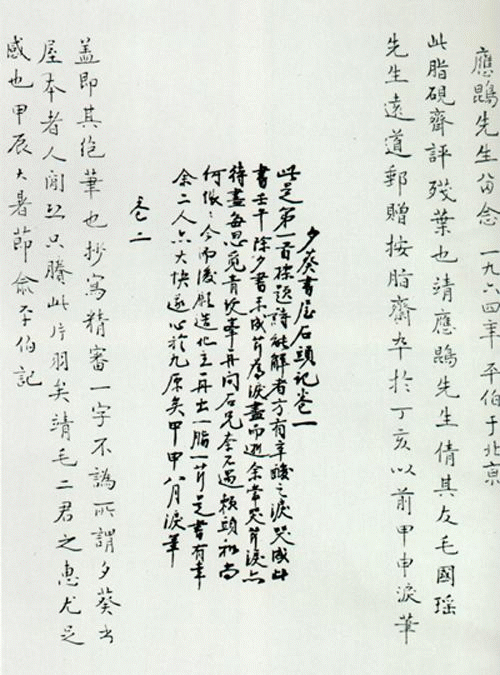 應鵾先生留念 一九六四年 平伯于北京
此脂硯齋評殘葉也靖應鵾先生倩其友毛國瑤
先生遠道郵贈按脂齋卒於丁亥以前甲申淚筆
夕葵書屋石頭記卷一
此是第一首標題詩能解者方有辛酸之淚哭成此
書壬午除夕書未成芹為淚盡而逝余常哭芹淚亦
待盡每思覓青埂峯再問石兄奈不遇賴頭和尚
何悵〻今而後願造化主再出一脂一芹是書有幸
余二人亦大快遂心於九原矣甲申八月淚筆
卷二
盖即其絕筆也抄寫精審一字不譌所謂夕葵書
屋本者人間恐只賸此片羽矣靖毛二君之惠尤足
感也甲辰大暑節俞平伯記